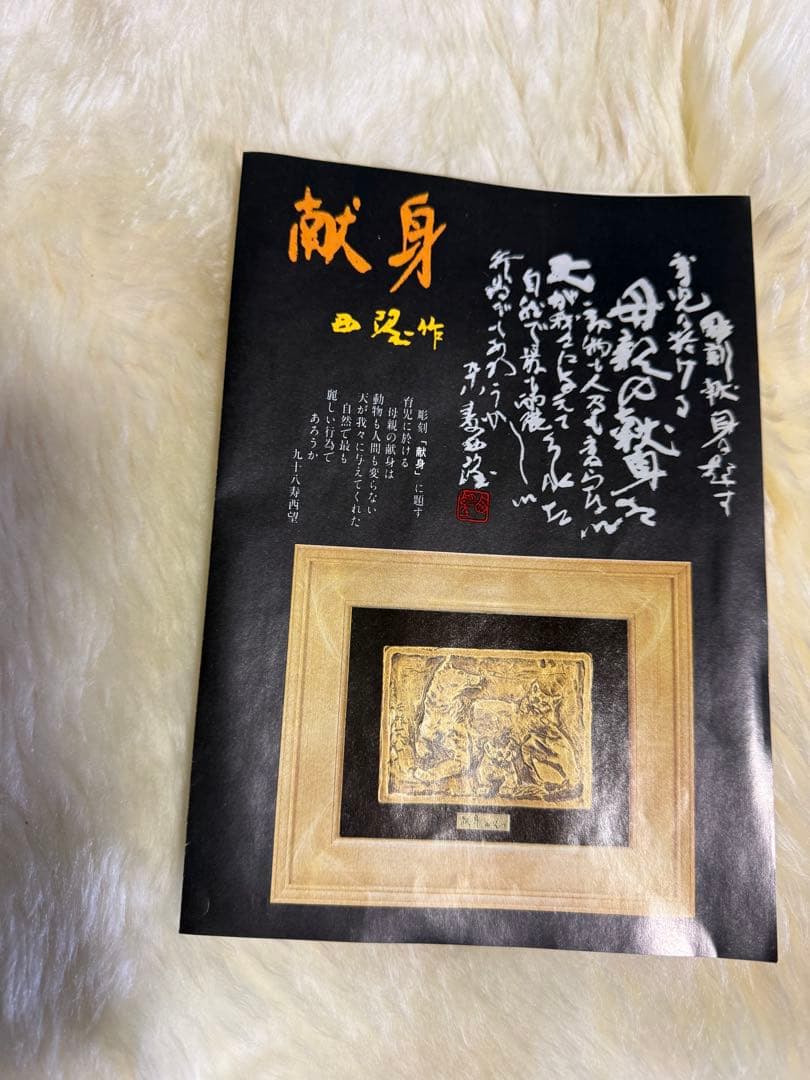 献身
西望作
彫刻「献身」に題す
育児に於ける
母親の献身は
動物も人間も変らない
天が我々に与えてくれた
自然で最も
麗しい行為で
あろうか
九十八寿西望
彫刻献身に題す
育児に於ける
母親の献身は
動物も人間も変らない
天が我々に与えてくれた
自然で最も麗しい
行為であろうか